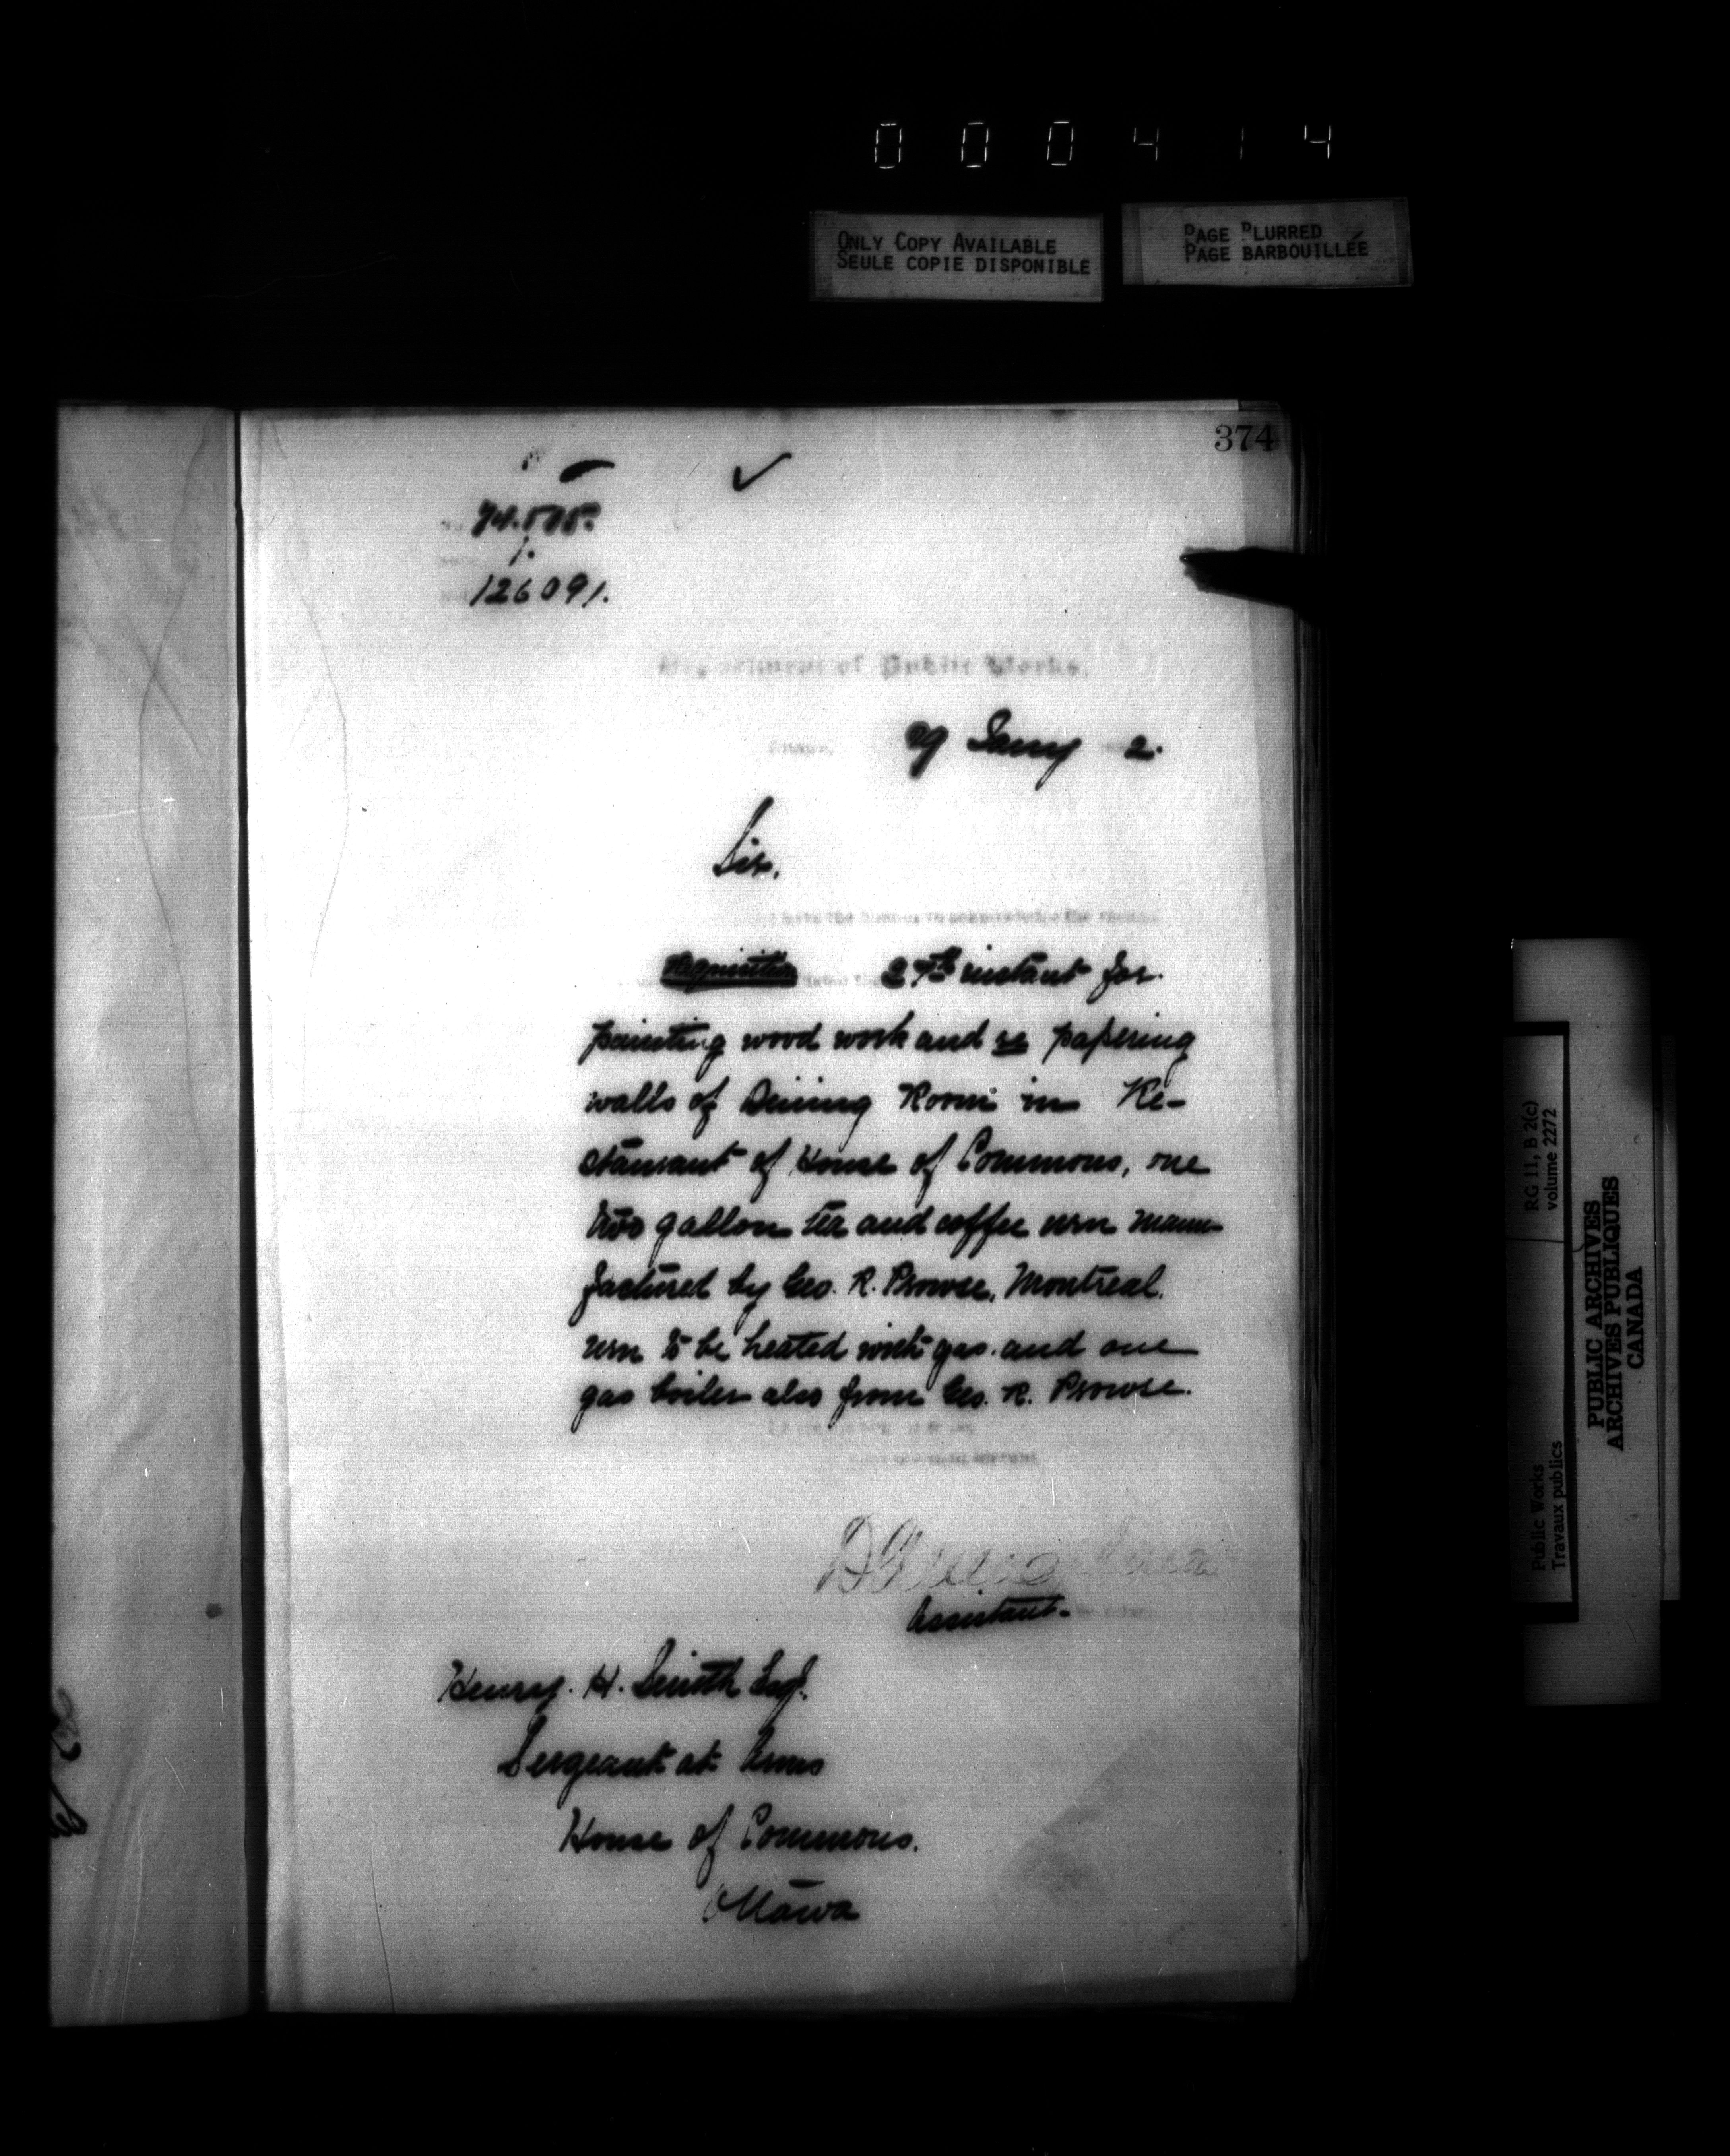 000414
ONLY COPY AVAILABLE
SEULE COPIE DISPONIBLE
PAGE BLURRED
PAGE BARBOUILLÉE
374
1.
126091.
Department of Public Works,
29 Jany 2.
Sir,
I have the honour to acknowledge the receipt
requisition 27th instant for
painting wood work and re papering
walls of Dining Room in Re-
staurant of House of Commons, one
two gallon tea and coffee urn manu-
factured by Geo. R. Prowse, Montreal.
urn to be heated with gas. and one
gas boiler also from Geo. R. Prowse.
Assistant.
Henry. H. Smith Esq.
Sergeant at Arms
House of Commons.
Ottawa
RG 11, B 2(c)
volume 2272
Public Works
Travaux publics
PUBLIC ARCHIVES
ARCHIVES PUBLIQUES
CANADA